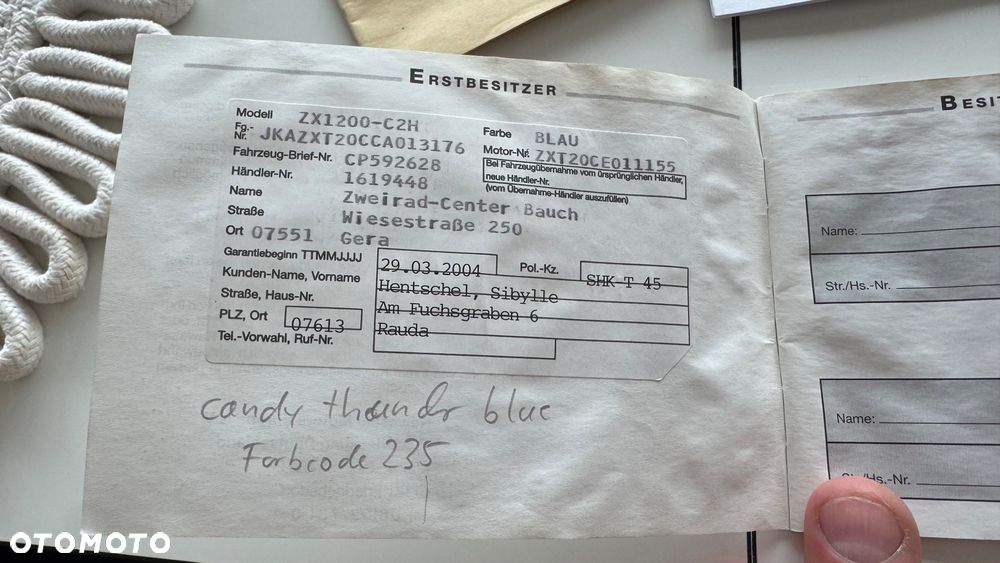 ERSTBESITZER
Modell ZX1200-C2H
Fg.-Nr. JKAZXT20CCA013176
Fahrzeug-Brief-Nr. CP592628
Händler-Nr. 1619448
Name Zweirad-Center Bauch
Straße Wiesestraße 250
Ort 07551 Gera
Farbe BLAU
Motor-Nr. ZXT20CE011155
Bei Fahrzeugübernahme vom ürsprünglichen Händler,
neue Händler-Nr.
(vom Übernahme-Händler auszufüllen)
Garantiebeginn TTMMJJJJ 29.03.2004 Pol.-Kz. SHK T 45
Kunden-Name, Vorname Hentschel, Sibylle
Straße, Haus-Nr. Am Fuchsgraben 6
PLZ, Ort 07613 Rauda
Tel.-Vorwahl, Ruf-Nr.
candy thunder blue
Farbcode 235
BESIT
Name:
Str./Hs.-Nr.
Name:
Str./Hs.-Nr.
OTOMOTO